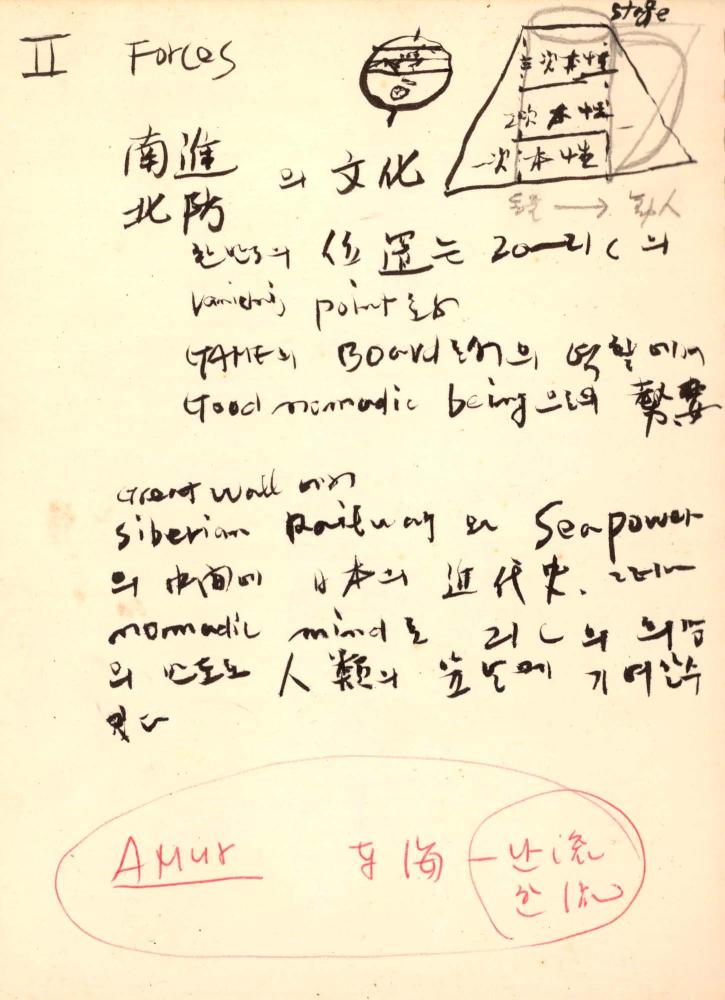 II Forces
stage
三次本性
2次 本 性
一次 本 性
동물 → 幼人
南進
北防 의 文化
한반도의 位置는 20—21 C의
vanishing point로서
GAME의 BOard로서의 역할에서
Good nomadic being으로의
Great Wall 에서
Siberian Railway 와 Sea power
의 中間에 日本의 進代史. 그러나
nomadic mind로 21 C의
의 반도도 人類의 앞날에 기여할수
있다
AMUR 东海 — 난流
한流